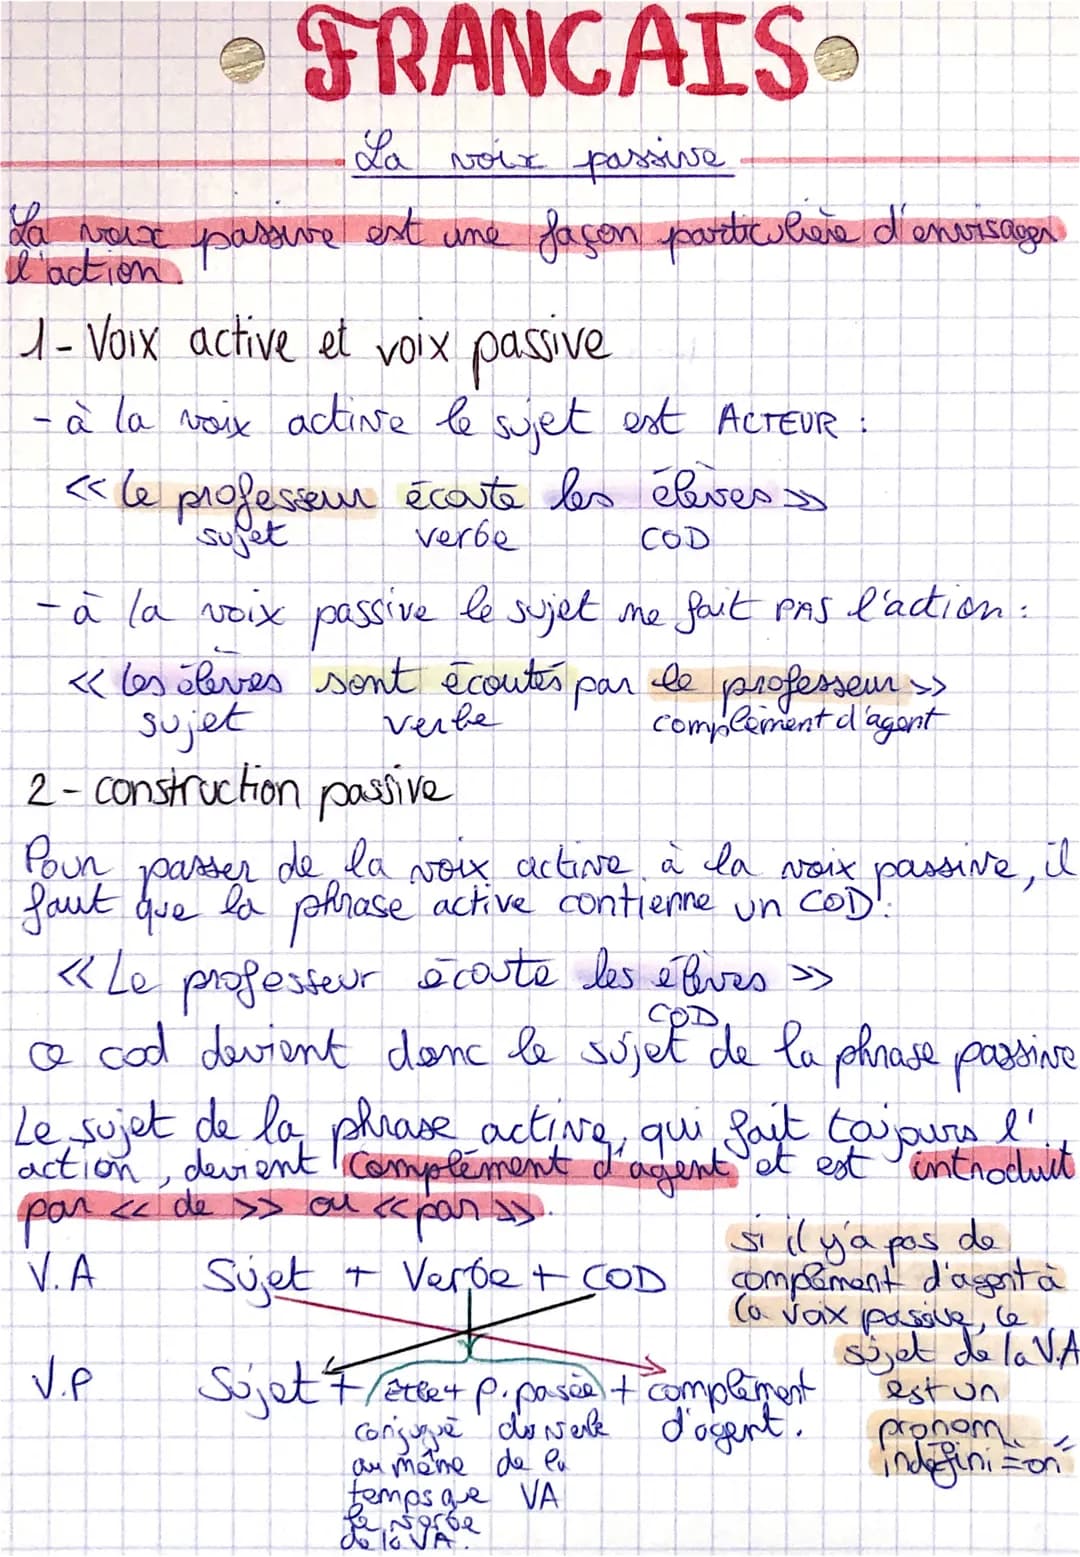 FRANCAIS
La voix passive
La voix passive est une façon particulière d'envisager
l'action.
1- Voix active et voix passive
- à la voix active le sujet est ACTEUR :
<< le professeur écoute les élèves >>
sujet verbe COD
- à la voix passive le sujet ne fait PAS l'action :
<< les élèves sont écoutés par le professeur >>
sujet verbe complément d'agent
2- construction passive
Pour passer de la voix active à la voix passive, il
faut que la phrase active contienne un COD :
<< Le professeur écoute les élèves >>
COD
ce cod devient donc le sujet de la phrase passive
Le sujet de la phrase active, qui fait toujours l'
action, devient complément d'agent et est introduit
par << de >> ou << par >>.
V.A Sujet + Verbe + COD
V.P Sujet + être + p. passé + complément
conjugué du verbe d'agent.
au même de la
temps que VA
le verbe
de la VA.
si il y'a pas de
complément d'agent à
la voix passive, le
sujet de la V.A
est un
pronom
indéfini = "on"